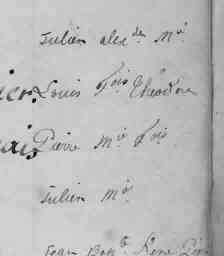 Julien alex.dre M.ie
Louis f.ois Theodore
Pierre M.ie f.ois
Julien M.ie
Jean Bap.te René